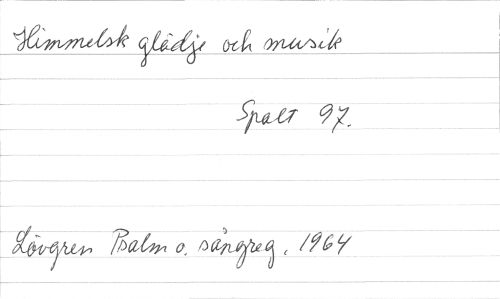 Himmelsk glädje och musik
Spalt 97.
Lövgren Psalm o. sångreg. 1964